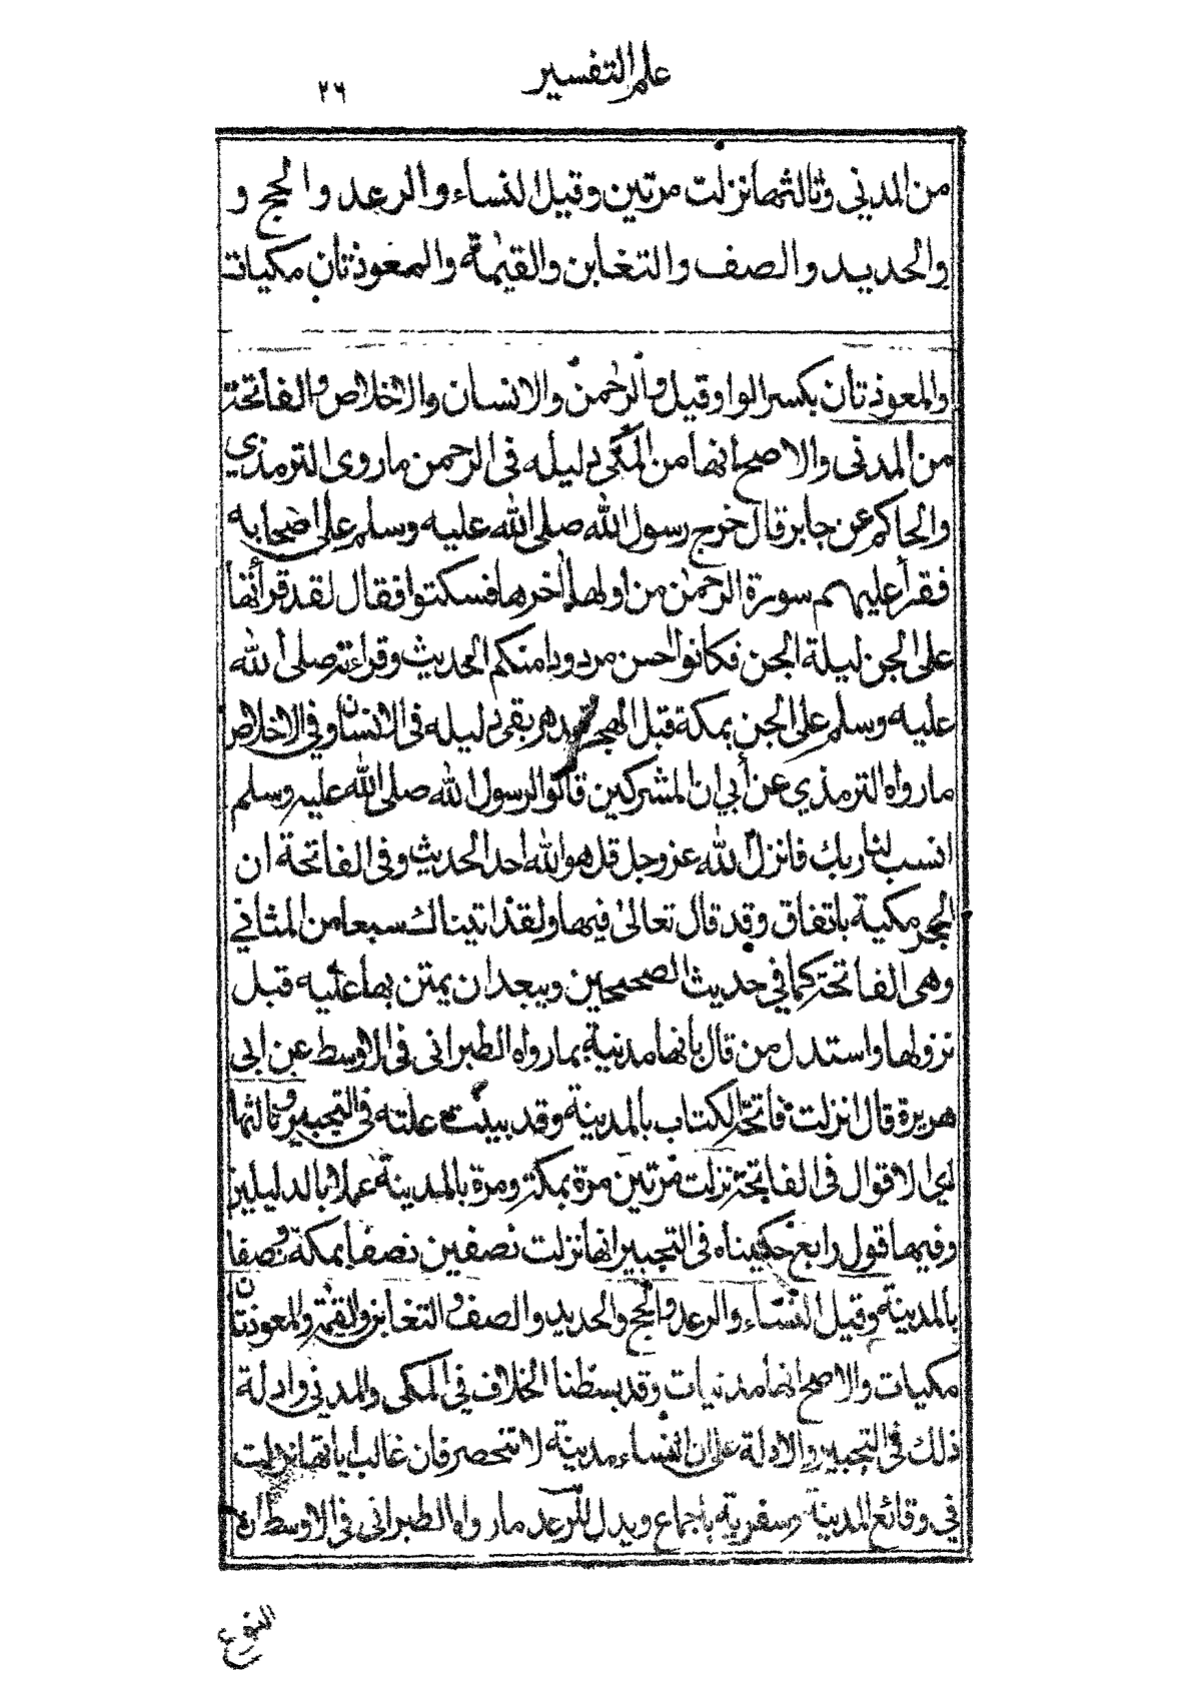 علم التفسير
٢٦
من المدني وثالثها نزلت مرتين وقيل النساء والرعد والحج و
والحديد والصف والتغابن والقيٰمة والمعوذتان مكيات
والمعوذتان بكسر الواو وقيل والرحمن والانسان والاخلاص والفاتحة
من المدنى والاصح انها من المكي دليله فى الرحمن ما روى الترمذي
والحاكم عن جابر قال خرج رسول الله صلى الله عليه وسلم على اصحابه
فقرأ عليهم سورة الرحمٰن من اولها الى اخرها فسكتوا فقال لقد قرأتها
على الجن ليلة الجن فكانوا احسن مردودا منكم الحديث وقراءته صلى الله
عليه وسلم على الجن بمكة قبل الهجرة بدهر بقى دليله فى الانسان وفي الاخلاص
ما رواه الترمذي عن أبي ان المشركين قالوا لرسول الله صلى الله عليه وسلم
انسب لنا ربك فانزل الله عز وجل قل هو الله احد الحديث وفى الفاتحة ان
الحجر مكية باتفاق وقد قال تعالىٰ فيها ولقد اتيناك سبعا من المثاني
وهى الفاتحة كما في حديث الصحيحين ويبعد ان يمتن بها عليه قبل
نزولها واستدل من قال بأنها مدنية بما رواه الطبرانى فى الاوسط عن ابى
هريرة قال انزلت فاتحة الكتاب بالمدينة وقد بينت علته فى التحبير وثالثها
اي الاقوال فى الفاتحة نزلت مرتين مرة بمكة ومرة بالمدينة عملا بالدليلين
وفيها قول رابع حكيناه فى التحبير انها نزلت نصفين نصفا بمكة ونصفا
بالمدينة وقيل النساء والرعد والحج والحديد والصف والتغابن والقيمة والمعوذتان
مكيات والاصح انها مدنيات وقد بسطنا الخلاف في المكى والمدنى وادلة
ذلك فى التحبير والادلة على ان النساء مدينة لا تنحصر فان غالب أياتها نزلت
في وقائع المدينة وسفرية باجماع ويدل للرعد ما رواه الطبرانى فى الاوسط ان
النوع